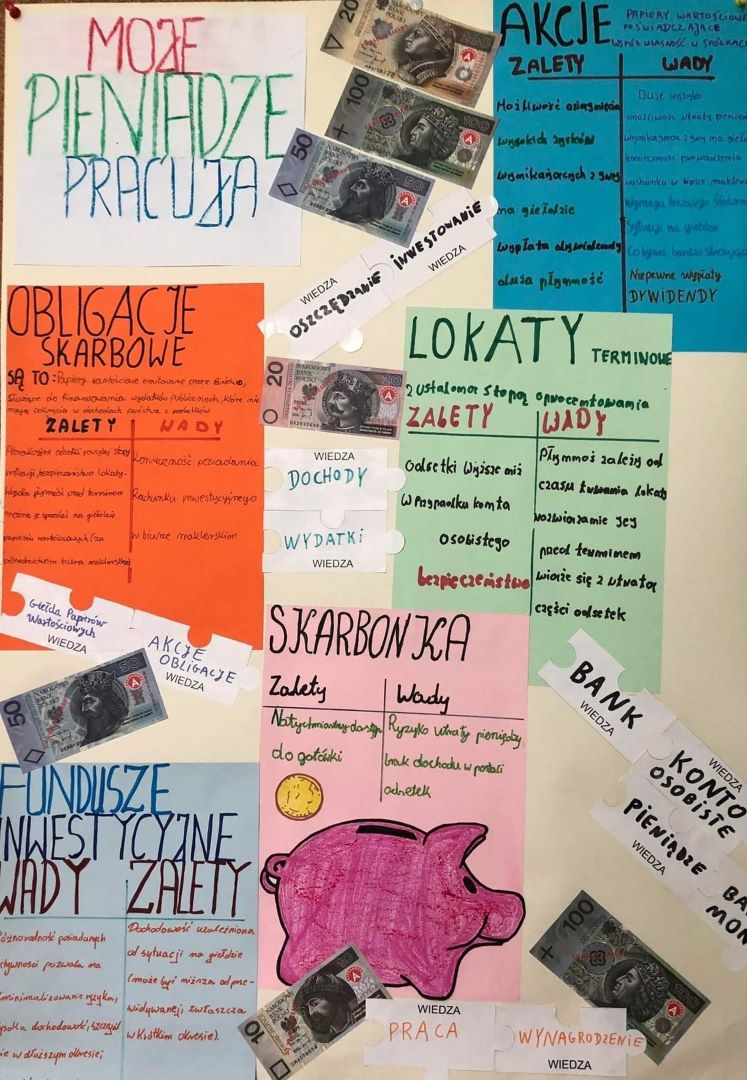 MOJE
PIENIĄDZE
PRACUJĄ
AKCJE
PAPIERY WARTOŚCIOWE
POŚWIADCZAJĄCE
WSPÓŁWŁASNOŚĆ W SPÓŁKACH
ZALETY
Możliwość osiągnięcia
wysokich zysków
wynikających z gry
na giełdzie
wypłata dywidendy
duża płynność
WADY
Duże ryzyko
możliwość utraty pieniędzy
wynikająca z gry na giełdzie
konieczność prowadzenia
rachunku w biurze maklerskim
Wymaga bieżącego śledzenia
Sytuacji na giełdzie
Co bywa bardzo stresujące
Niepewne wypłaty
DYWIDENDY
OSZCZĘDZANIE
WIEDZA
INWESTOWANIE
WIEDZA
OBLIGACJE
SKARBOWE
SĄ TO: Papiery wartościowe emitowane przez Państwo,
Służące do finansowania wydatków publicznych, które nie
mają pokrycia w dochodach państwa z podatków
ZALETY
Atrakcyjne odsetki powyżej stopy
inflacji, bezpieczeństwo lokaty,
płynność przed terminem
można je sprzedać na giełdzie
papierów wartościowych (za
pośrednictwem biura maklerskiego)
WADY
Konieczność posiadania
Rachunku inwestycyjnego
w biurze maklerskim
LOKATY TERMINOWE
z ustaloną stopą oprocentowania
ZALETY
Odsetki Wyższe niż
w Przypadku konta
osobistego
bezpieczeństwo
WADY
Płynność zależy od
czasu trwania lokaty
rozwiązanie jej
przed terminem
wiąże się z utratą
części odsetek
WIEDZA
DOCHODY
WYDATKI
WIEDZA
Giełda Papierów
Wartościowych
WIEDZA
AKCJE
OBLIGACJE
WIEDZA
SKARBONKA
Zalety
Natychmiastowy dostęp
do gotówki
Wady
Ryzyko utraty pieniędzy
brak dochodu w postaci
odsetek
BANK
WIEDZA
WIEDZA
KONTO
OSOBISTE
PIENIĄDZE
WIEDZA
FUNDUSZE
INWESTYCYJNE
WADY
Różnorodność posiadanych
aktywności pozwala na
zminimalizowanie ryzyka,
wysoka dochodowość, szczegól
nie w dłuższym okresie,
ZALETY
Dochodowość uzależniona
od sytuacji na giełdzie
(może być niższa od prze-
widywanej, zwłaszcza
w krótkim okresie).
WIEDZA
PRACA
WYNAGRODZENIE
WIEDZA
20
100
50
NARODOWY
BANK
POLSKI
20
50
100
10